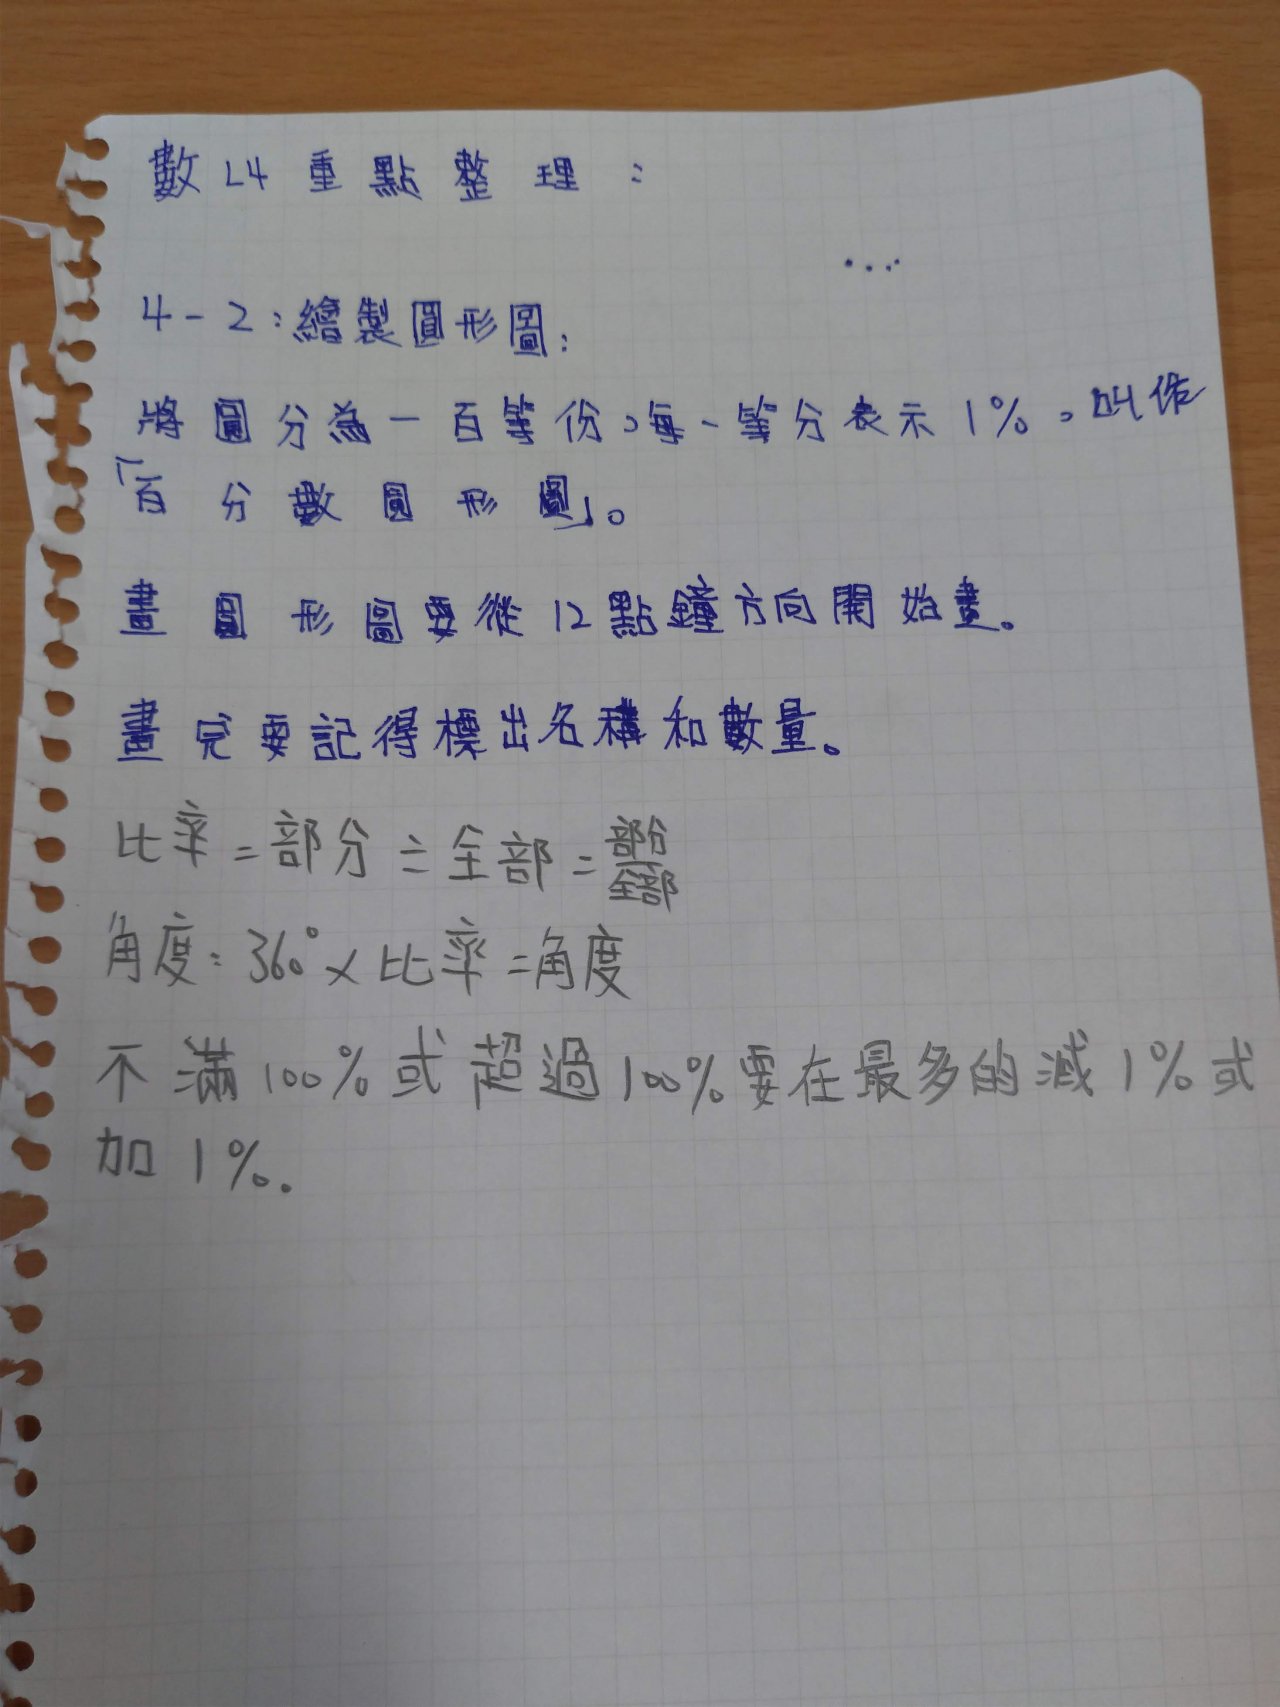 數L4重點整理：
4-2：繪製圓形圖：
將圓分為一百等份，每一等分表示1%，叫作
「百分數圓形圖」。
畫圓形圖要從12點鐘方向開始畫。
畫完要記得標出名稱和數量。
比率=部分÷全部=部分/全部
角度：360°×比率=角度
不滿100%或超過100%要在最多的減1%或
加1%。